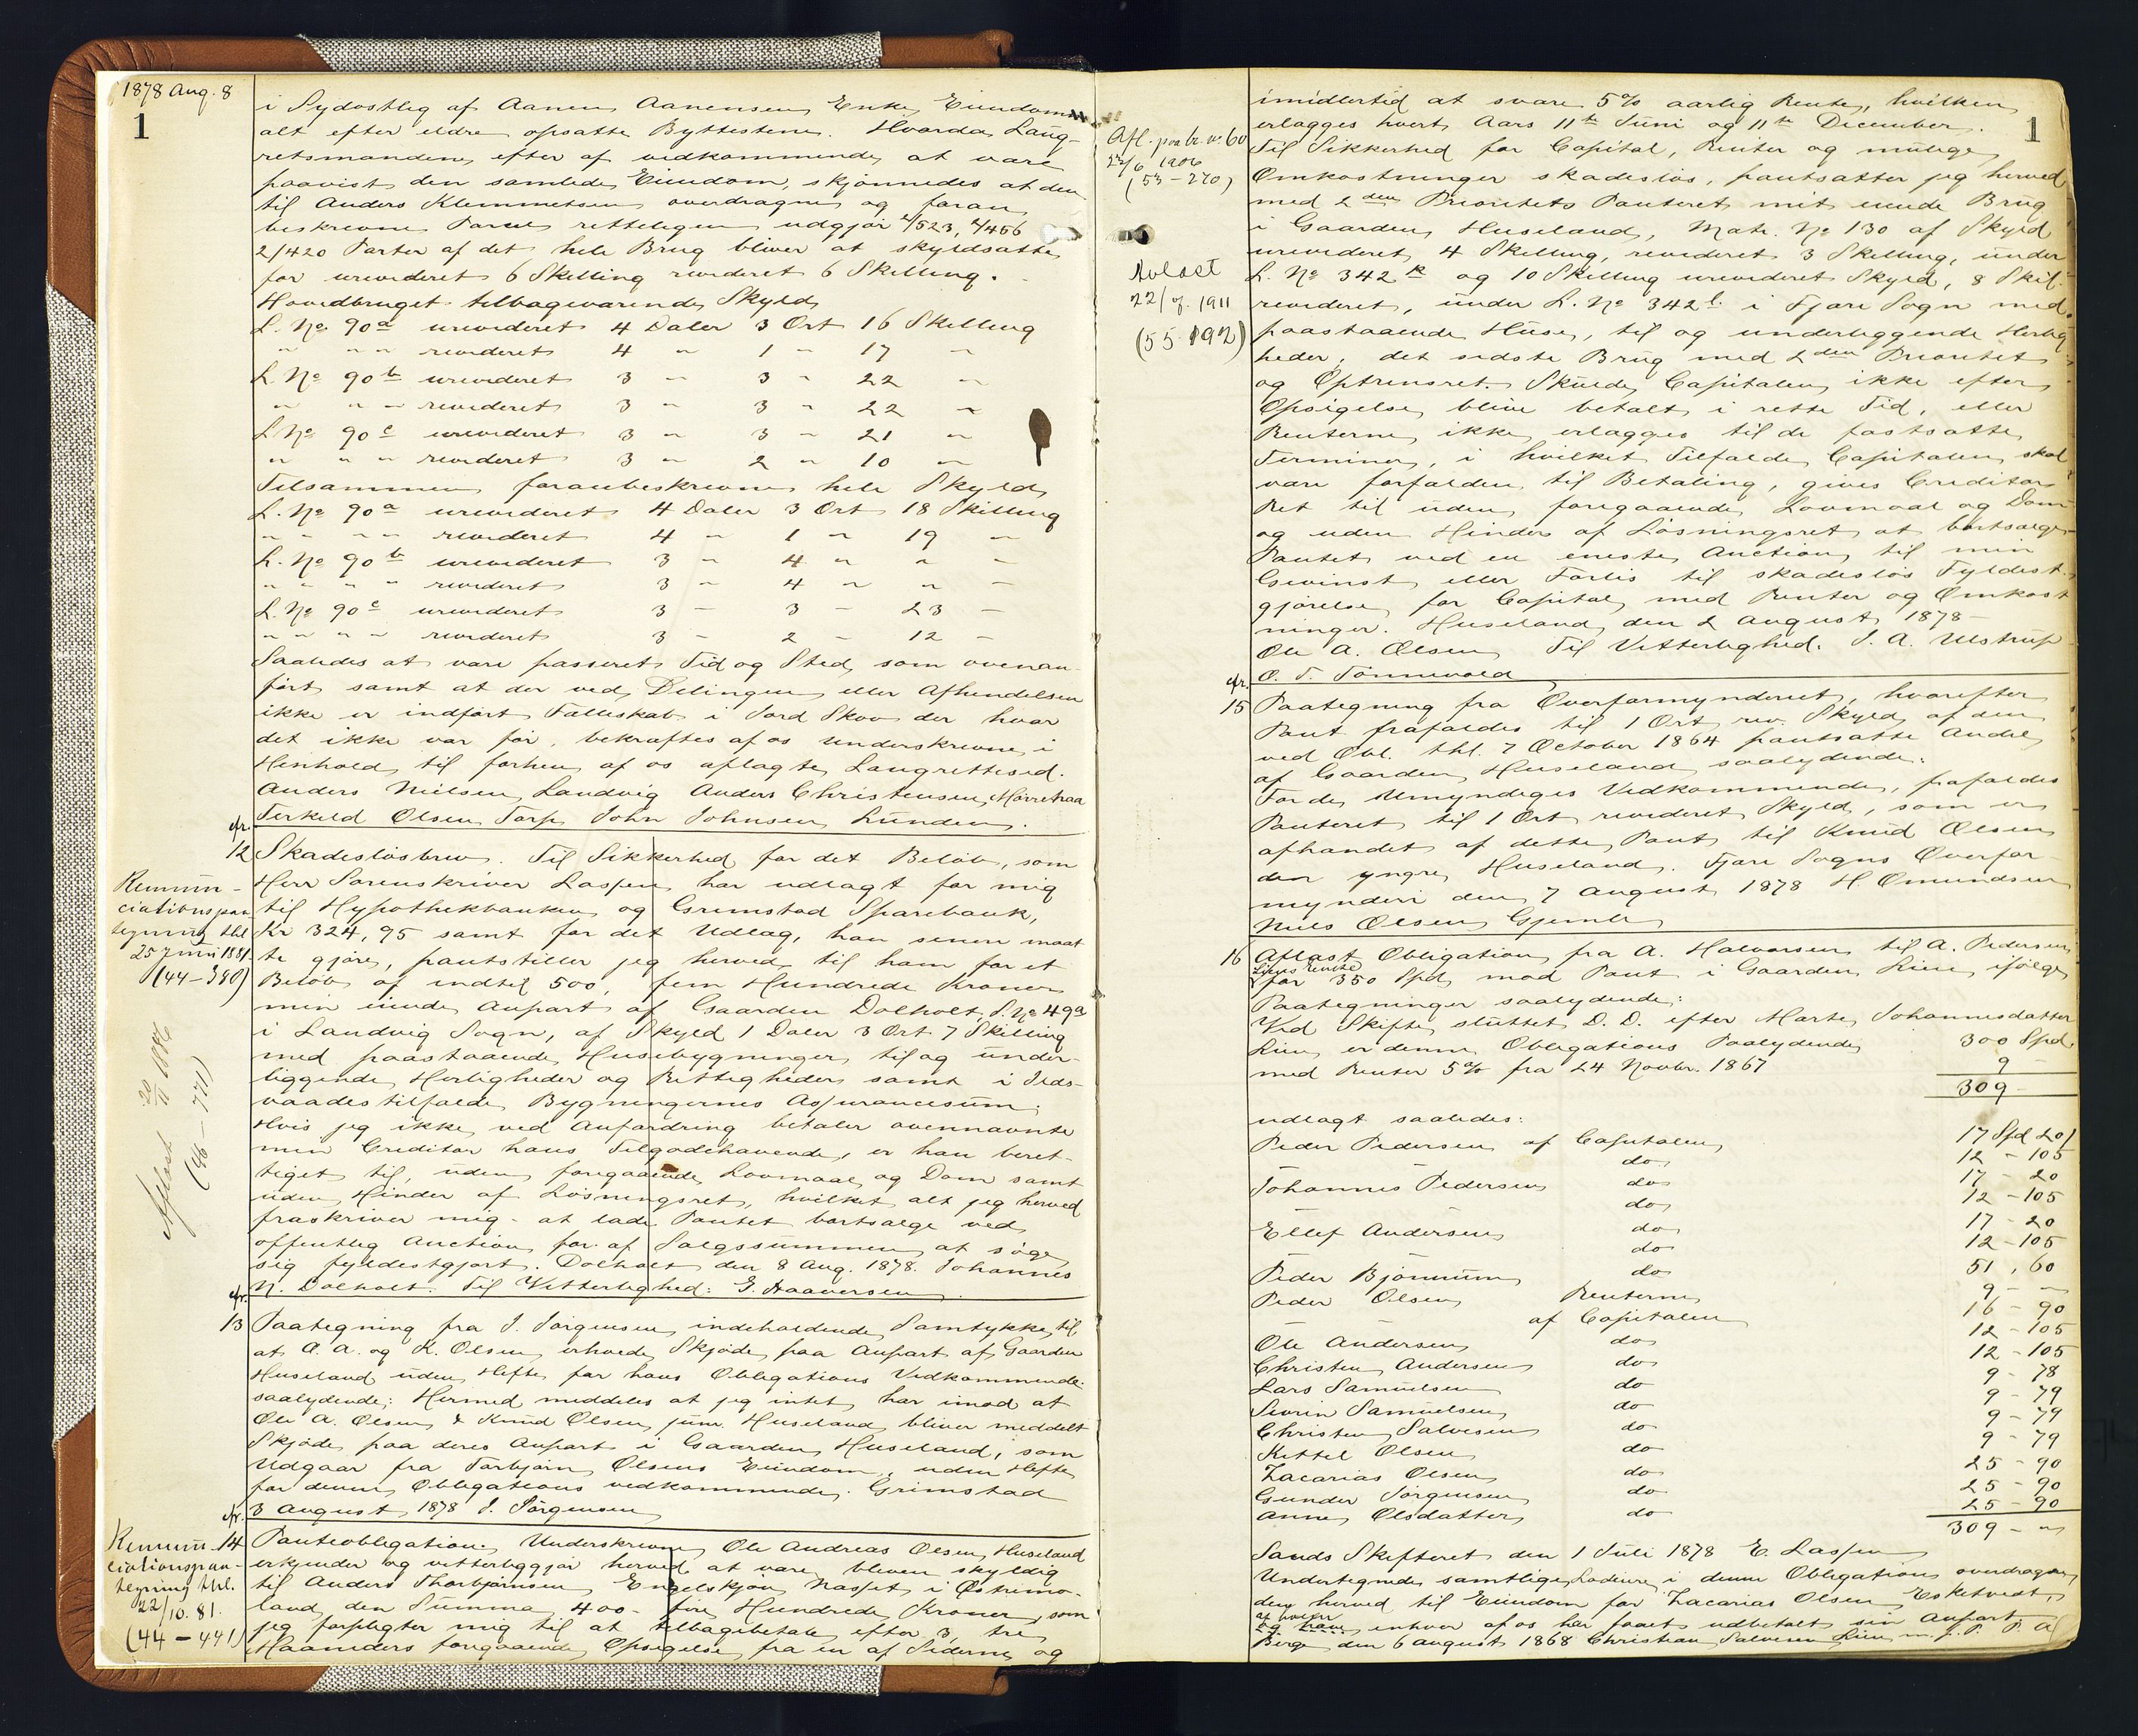 1878 Aug. 8
1
i Sydostlig af Aanen Aanensens Enkes Eiendom
alt efter eldre opsatte Byttestene. Hvorda Laug-
retsmanden, efter af vedkommende at være
paavist den samlede Eiendom, skjønnedes at den
til Anders Klemmetsen overdragne og foran
beskrevne Parcel retteligen udgjør 2/523, 2/456
2/420 Parter af det hele Brug bliver at skyldsætte
for urevideret 6 Skilling revideret 6 Skilling.
Hovedbruget tilbageværende Skyld
L. No 90a urevideret 4 Daler 3 Ort 16 Skilling
" " " revideret 4 " 1 " 17 "
L. No 90b urevideret 3 " 3 " 22 "
" " " revideret 3 " 3 " 22 "
L No 90c urevideret 3 " 3 " 21 "
" " " revideret 3 " 2 " 10 "
Tilsammen foranbeskrevne hele Skyld
L. No 90a urevideret 4 Daler 3 Ort 18 Skilling
" " " " revideret 4 " 1 " 19 "
L. No 90b urevideret 3 " 4 " " "
" " " " revideret 3 " 4 " " "
L. No 90c urevideret 3 - 3 - 23 -
" " " " revideret 3 - 2 - 12 -
Saaledes at være passeret Tid og Sted, som ovenan-
ført samt at der ved Delingen eller Afhendelsen
ikke er indført Fælleskab i Jord Skov der hvor
det ikke var før, bekræftes af os underskrevne, i
Henhold til forhen af os aflagte Laugrettesed.
Anders Nielsen Landvig Anders Christensen Morretraa
Terkeld Olsen Torp John Johnsen Lunden.
cfr.
12 Skadesløsbrev. Til Sikkerhed for det Beløb, som
Herr Sorenskriver Lassen har udlagt for mig
til Hypothekbanken og Grimstad Sparebank,
Kr 324,95 samt for det Udlæg, han senere maat-
te gjøre, pantstiller jeg herved til ham for et
Beløb af indtil 500, fem Hundrede Kroner
min eiende Anpart af Gaarden Dolholt, L. No 49a
i Landvig Sogn, af Skyld 1 Daler 3 Ort 7 Skilling
med paastaaende Husebygninger til og under-
liggende Herligheder og Rettigheder samt i Ilds-
vaadestilfælde Bygningernes Assurancesum.
Hvis jeg ikke ved Anfordring betaler ovennævnte
min Creditor hans Tilgodehavende, er han beret-
tiget til, uden foregaaende Lovmaal og Dom samt
uden Hinder af Løsningsret, hvilket alt jeg herved
fraskriver mig - at lade Pantet bortsælge ved
offentlig Auction for af Salgssummen at søge
sig fyldestgjort. Dolholt den 8 Aug. 1878. Johannes
N. Dolholt. Til Vitterlighed: G. Haaversen.
Renun-
ciationspaa-
tegning thl
25 Juni 1881
(44-380)
Aflæst 20/11 1886
(46-771)
cfr.
13 Paategning fra J. Jørgensen indeholdende Samtykke til
at O. A. og K. Olsen erholde Skjøde paa Anpart af Gaarden
Huseland uden Hefte for hans Obligations Vedkommende.
saalydende: Hermed meddeles at jeg intet har imod at
Ole A. Olsen & Knud Olsen junr. Huseland bliver meddelt
Skjøde paa deres Anpart i Gaarden Huseland, som
Udgaar fra Torbjørn Olsens Eiendom, uden Hefte
for denne Obligations vedkommende. Grimstad
3 August 1878 J. Jørgensen
cfr.
14 Panteobligation. Underskrevne Ole Andreas Olsen Huseland
erkjender og vitterliggjør herved at være bleven skyldig
til Anders Thorbjørnsen Engelskjøn Næsset i Østremo-
land den Summa 400 - fire Hundrede Kroner, som
jeg forpligter mig til at tilbagebetale efter 3, tre
Maaneders foregaaende Opsigelse, fra en af Siderne og
Renun-
ciationspaa-
tegning thl.
22/10.81.
(44-441)
1
imidlertid at svare 5% aarlig Rente, hvilken
erlægges hvert Aars 11te Juni og 11te December.
Til Sikkerhed for Capital, Renter og mulige
Omkostninger skadesløs, pantsætter jeg herved
med 2den Prioritets Panteret mit eiende Brug
i Gaarden Huseland, Matr. No 130 af Skyld
urevideret 4 Skilling, revideret 3 Skilling, under
L. No 342k og 10 Skilling urevideret Skyld, 8 Skil.
revideret, under L. No 342l i Fjære Sogn med
paastaaende Huse, til og underliggende Herlig-
heder, det sidste Brug med 2den Prioritet
og Optrinsret. Skulde Capitalen ikke efter
Opsigelse blive betalt i rette Tid, eller
Renterne ikke erlægges til de fastsatte
Terminer, i hvilket Tilfælde Capitalen skal
være forfalden til Betaling, gives Creditor
Ret til uden foregaaende Lovmaal og Dom
og uden Hinder af Løsningsret at bortsælge
Pantet ved en eneste Auction, til min
Gevinst eller Forlis til skadesløs Fyldest-
gjørelse for Capital med Renter og Omkost
ninger. Huseland den 2 August 1878
Ole A. Olsen Til Vitterlighed. J. A. Ulstrup
O. T. Tønnevold
Afl. paa br. v. 60
22/6 1906
(53-270)
Avlæst
22/7. 1911
(55 192)
cfr.
15 Paategning fra Overformynderiet, hvorefter
Pant frafaldes til 1 Ort rev. Skyld af den
ved Obl. thl. 7 October 1864 pantsatte Andel
af Gaarden Huseland saalydende:
For de Umyndiges Vedkommende, frafaldes
Panteret til 1 Ort revideret Skyld, som er
afhændet af dette Pant til Knud Olsen
den yngre, Huseland. Fjære Sogns Overfor-
mynderi den 7 August 1878 H. Omundsen
Niels Olsen Gjemle
16 Aflæst Obligation fra A. Halvorsen til A. Pedersen
Liens Rente
for 350 Spd mod Pant i Gaarden Lien, ifølge
Paategninger saalydende:
Ved Skifte sluttet D. D. efter Marte Johannesdatter
Lien er denne Obligations Paalydende 300 Spd.
med Renter 5% fra 24 Novbr. 1867 9 -
309 -
udlagt saaledes:
Peder Pedersen af Capitalen 17 Spd 20/
do 12 - 105
Johannes Pedersen do 17 - 20
do 12 - 105
Ellef Andersen do 17 - 20
do 12 - 105
Peder Bjønnum do 51, 60
Peder Olsen Renterne 9 - -
af Capitalen 16 - 90
Ole Andersen do 12 - 105
Christen Andersen do 12 - 105
Lars Samuelsen do 9 - 78
Sevrin Samuelsen do 9 - 79
Christen Salvesen do 9 - 79
Kittel Olsen do 9 - 79
Zacarias Olsen do 25 - 90
Gunder Jørgensen do 25 - 90
Anne Olsdatter do 25 - 90
309 - "
Sands Skifteret den 1 Juli 1878 E. Lassen
Undertegnede samtlige Lodeiere i denne Obligation overdrager
den herved til Eiendom for Zacarias Olsen Esketvedt,
af hvem
enhver af os har faaet udbetalt sin Anpart
Berge den 6 August 1868 Christian Salvesen Lien m. f. P. P. A